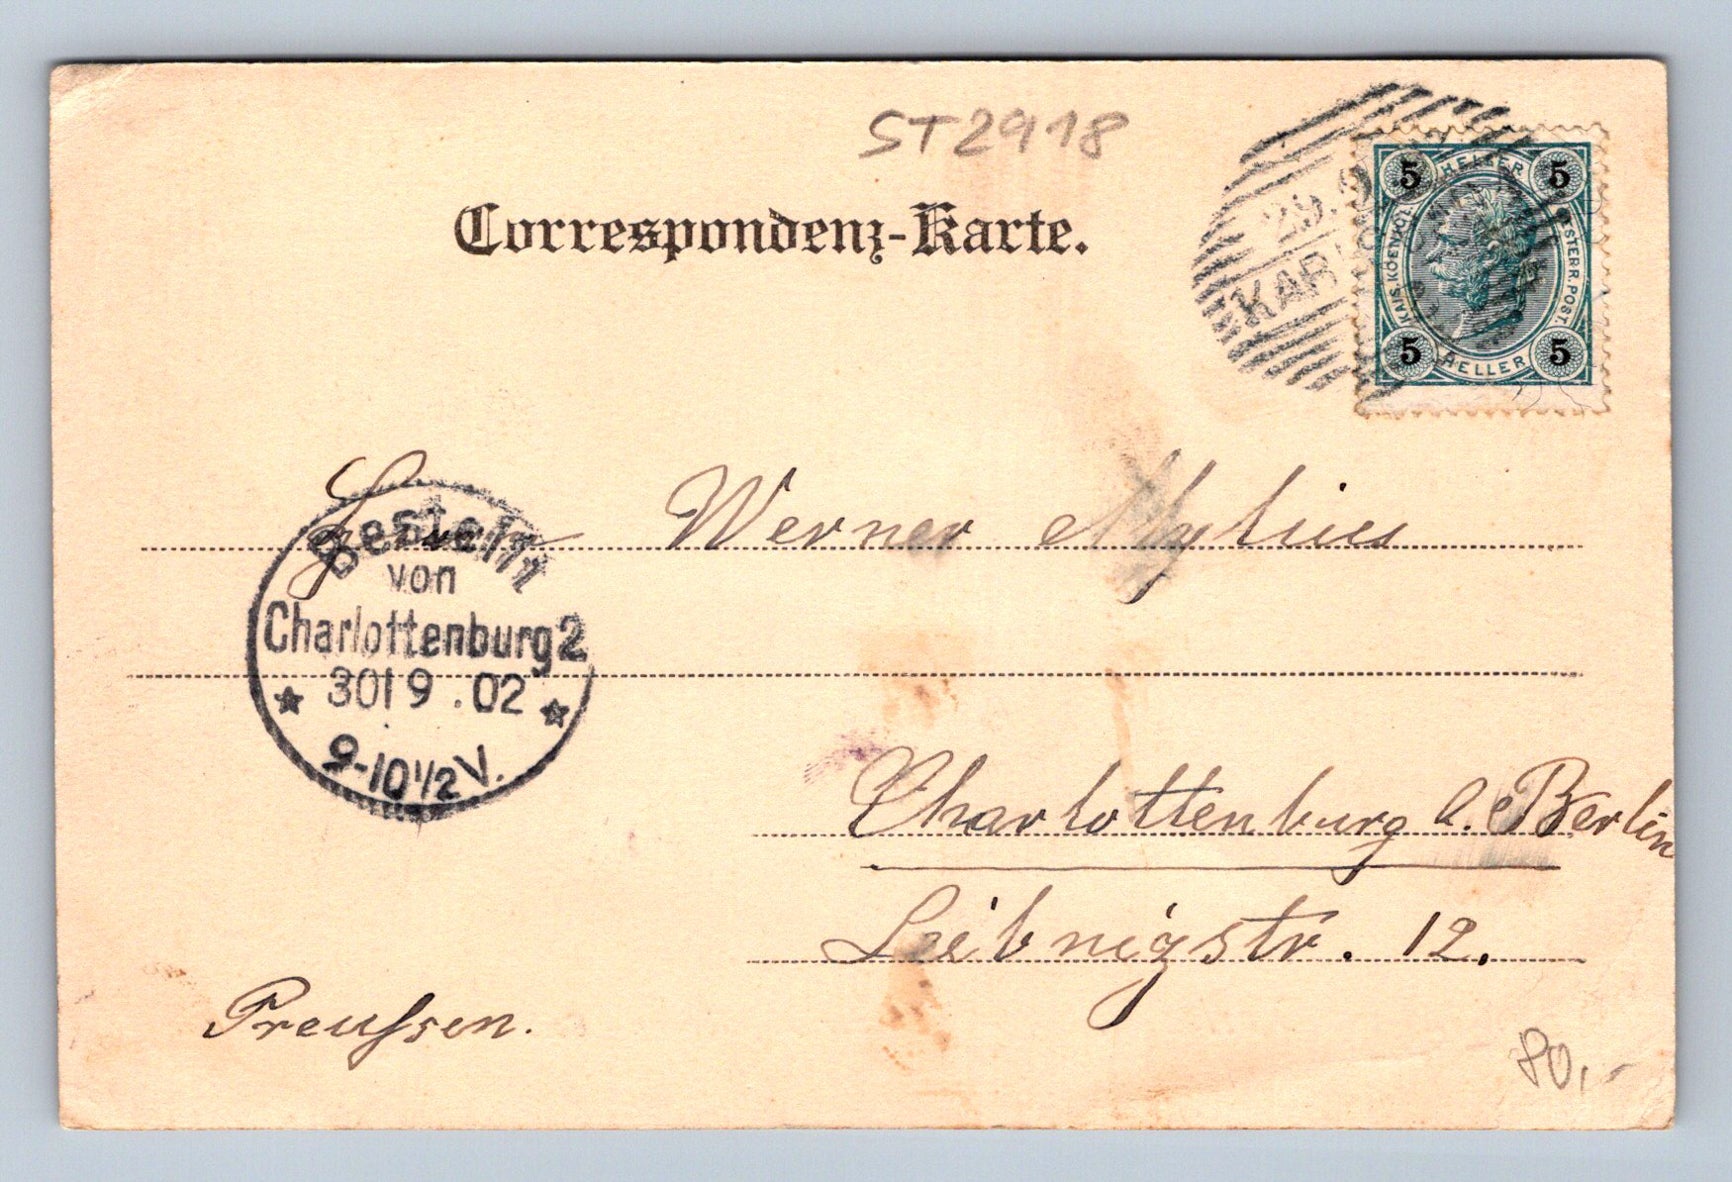 ST2918
Correspondenz-Karte.
29.9
KARLS
5 HELLER 5
KAIS. KOENIGL. ÖSTERR. POST.
5 HELLER 5
Herrn Werner Mylius
Bestellt
von
Charlottenburg 2
30 9 .02
9-10 1/2 V.
Charlottenburg b. Berlin
Leibnizstr. 12.
Preussen.
80,-